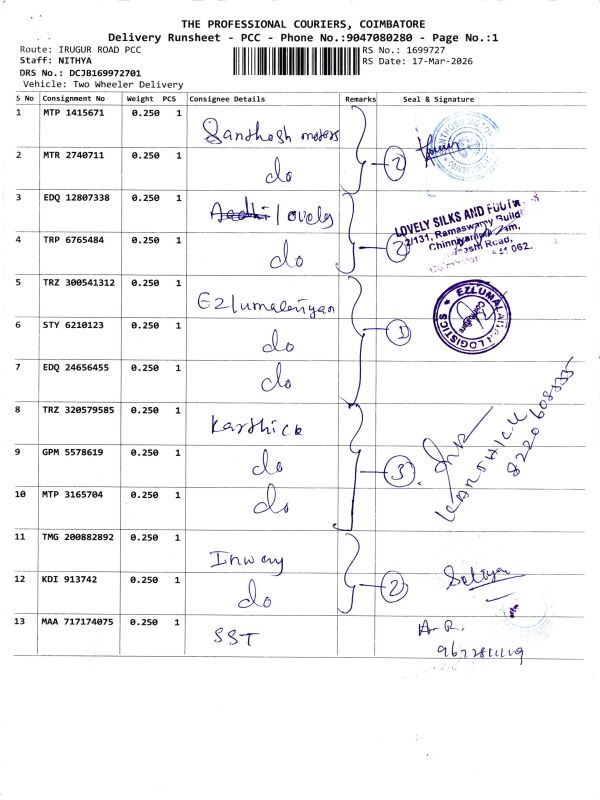 THE PROFESSIONAL COURIERS, COIMBATORE
Delivery Runsheet - PCC - Phone No.:9047080280 - Page No.:1
Route: IRUGUR ROAD PCC
RS No.: 1699727
Staff: NITHYA
RS Date: 17-Mar-2026
DRS No.: DCJB169972701
Vehicle: Two Wheeler Delivery
S No Consignment No Weight PCS Consignee Details Remarks Seal & Signature
1 MTP 1415671 0.250 1 Santhosh motors
2 MTR 2740711 0.250 1 do 2
3 EDQ 12807338 0.250 1 Lovely
4 TRP 6765484 0.250 1 do 2
LOVELY SILKS AND
2/131, Ramaswamy
Road,
5 TRZ 300541312 0.250 1 Ezlumalaiyan
EZLUMALAIYAN LOGISTICS
6 STY 6210123 0.250 1 do
7 EDQ 24656455 0.250 1 do
8 TRZ 320579585 0.250 1 Karthick
9 GPM 5578619 0.250 1 do 3
KARTHICK
10 MTP 3165704 0.250 1 do
11 TMG 200882892 0.250 1
12 KDI 913742 0.250 1 do 2
13 MAA 717174075 0.250 1 SST A.R.